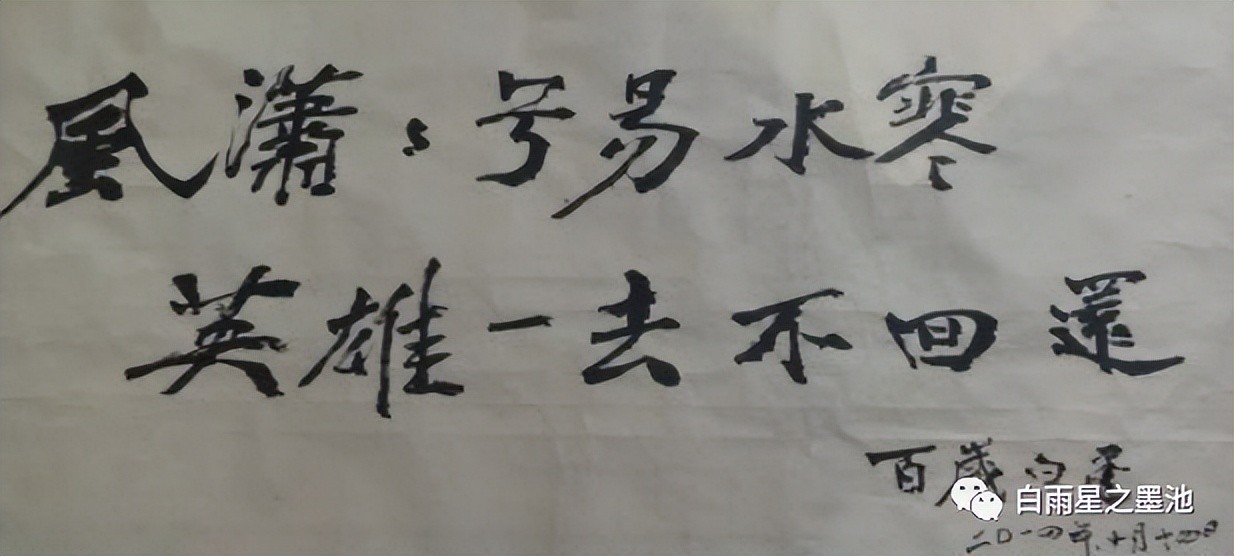 風瀟々兮易水寒
英雄一去不回還
百歲白
白雨星之墨池
二〇一四年十月十四日